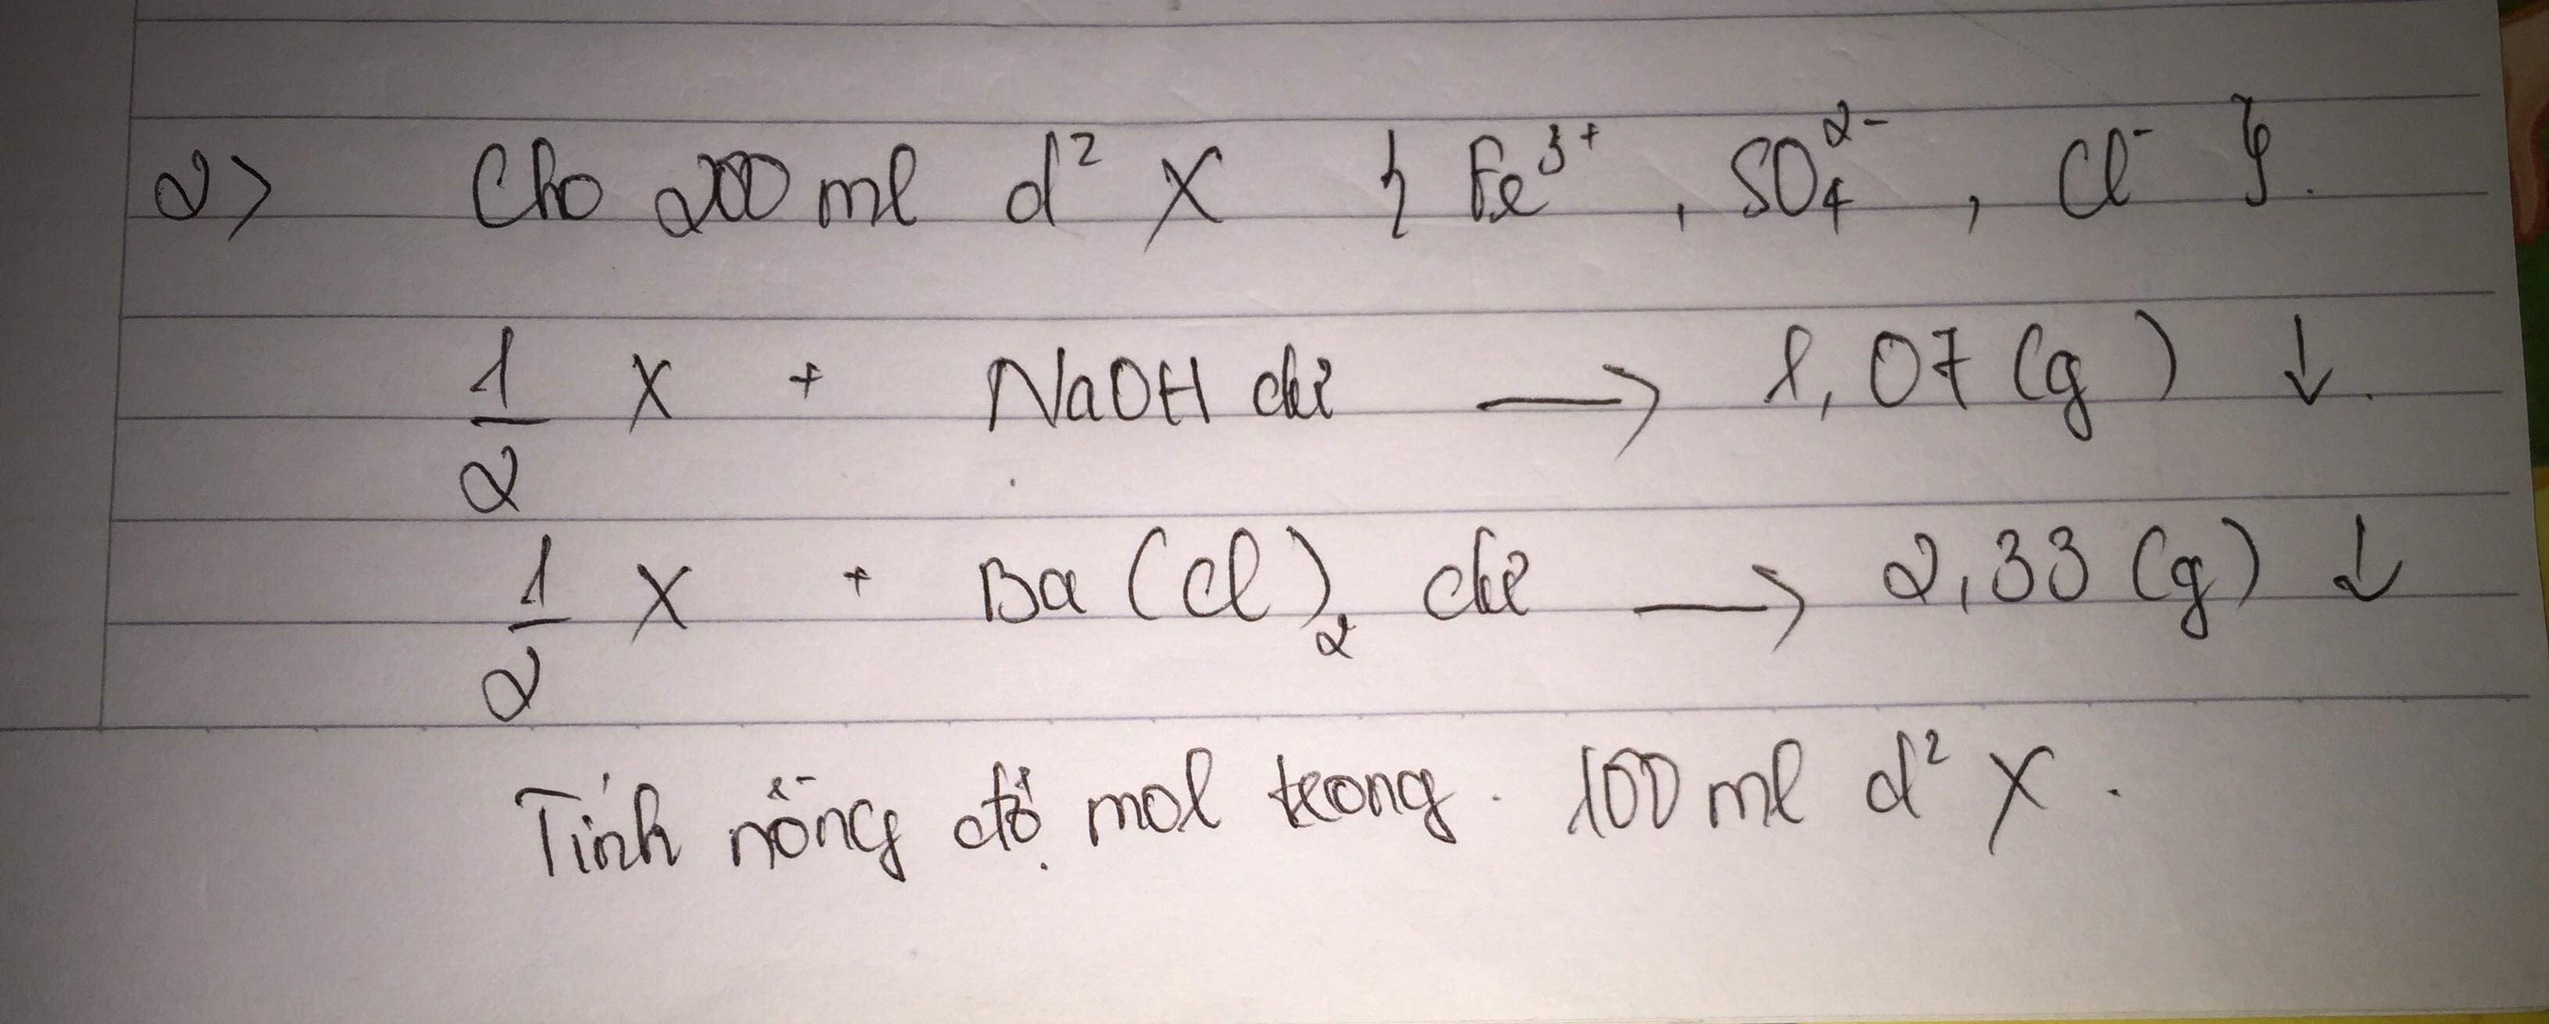 2> Cho 200 ml d² X { Fe³⁺, SO₄²⁻, Cl⁻ }.
1/2 X + NaOH dư → 1,07 (g) ↓.
1/2 X + Ba(Cl)₂ dư → 2,33 (g) ↓
Tính nồng độ mol trong. 100 ml d² X.